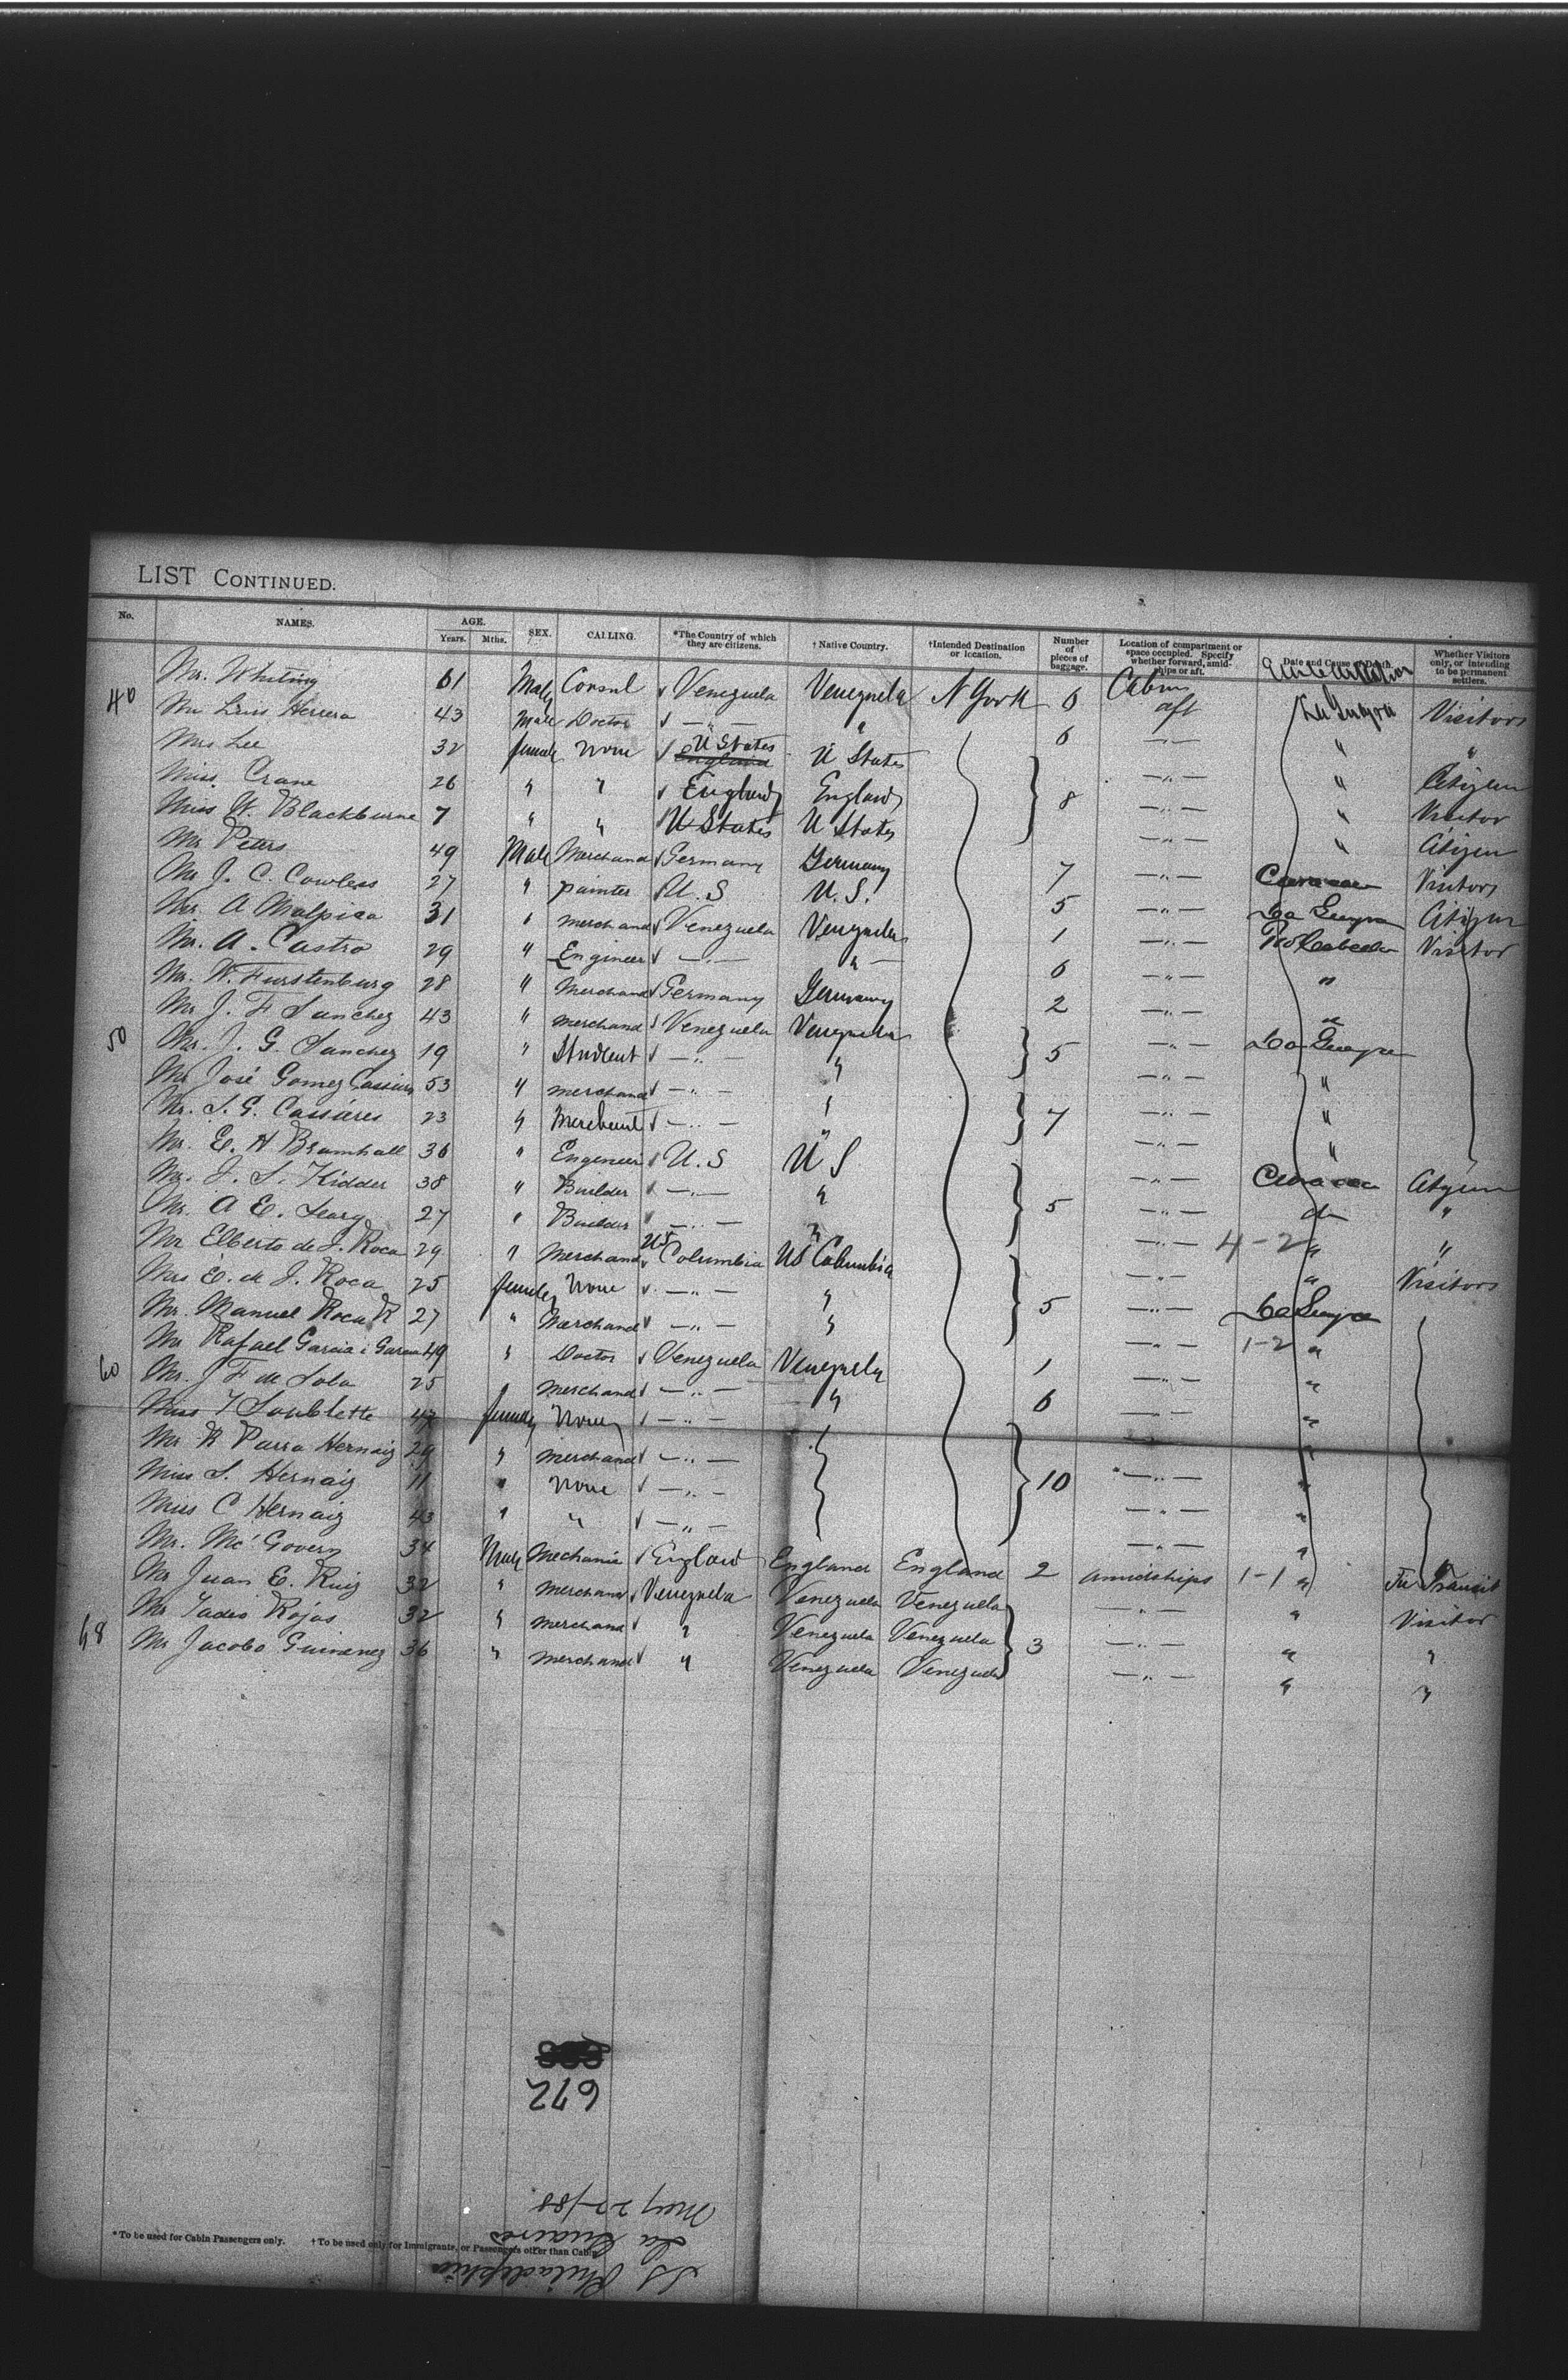 LIST CONTINUED.
No. NAMES. AGE. Years. Mths. SEX. CALLING. *The Country of which they are citizens. † Native Country. †Intended Destination or location. Number of pieces of baggage. Location of compartment or space occupied. Specify whether forward, amidships or aft. Date and Cause of Death. Whether Visitors only, or intending to be permanent settlers.
Mr. Whiting 61 Male Consul √ Venezuela Venezuela N York 6 Cabin aft La Guayra Visitors
40 Mr Luis Herrera 43 Male Doctor √ — " — " 6 — " — " "
Mrs Lee 32 female None √ U States England U States — " — " Citizen
Miss Crane 26 " " √ England England 8 — " — " Visitor
Miss W. Blackburne 7 " " √ U States U States — " — " Citizen
Mr Peters 49 Male Merchand √ Germany Germany 7 — " — Curacao Visitors
Mr J. C. Cowless 27 " painter √ U.S U.S. 5 — " — La Guayra Citizen
Mr. A Malpica 31 " merchand √ Venezuela Venezuela 1 — " — Pto Cabello Visitor
Mr. A. Castro 29 " Engineer √ — " — " — 6 — " — "
Mr. W. Furstenburg 28 " Merchand √ Germany Germany 2 — " —
Mr J. F Sanchez 43 " merchand √ Venezuela Venezuela — " — La Guayra
50 Mr. J. G. Sanchez 19 " Student √ — " — " 5 — " — "
Mr José Gomez 53 " merchand √ — " — " — " — "
Mr. S. G. Cassieres 23 " Merchant √ — " — " 7 — " — "
Mr. E. H Bramhall 36 " Engeneer √ U.S U S — " — Curacao Citizen
Mr. J. S. Kidder 38 " Builder √ — " — " 5 do "
Mr. A E. Leary 27 " Builder √ — " — " — " — 4-2 " "
Mr Elberto de J. Roca 29 " Merchand √ US Columbia US Columbia — " — " Visitors
Mrs E. de J. Roca 25 female None √ — " — " 5 — " — La Guayra
Mr. Manuel Roca R 27 " Merchand √ — " — " — " — 1-2 "
Mr Rafael Garcia i Garcia 49 " Doctor √ Venezuela Venezuela 1 — " — "
60 Mr. J F de Sola 25 " merchand √ — " — " 6 — " — "
Miss Soublette 47 female None √ — " — "
Mr R Parra Hernaiz 29 " merchand √ — " — 10 — " — "
Miss S. Hernaiz 11 " None √ — " — — " — "
Miss C Hernaiz 43 " " √ — " — — " — "
Mr. Mc Govern 34 Male Mechanic √ England England England 2 amidships 1-1 " In Transit
Mr Juan E. Ruiz 32 " Merchand √ Venezuela Venezuela Venezuela — " — " Visitor
Mr Tadeo Rojas 32 " merchand √ " Venezuela Venezuela 3 — " — " "
68 Mr Jacobo 36 " merchand √ " Venezuela Venezuela — " — " "
672
May 22/88
La Guaira
SS Philadelphia
*To be used for Cabin Passengers only. † To be used only for Immigrants, or Passengers other than Cabin.